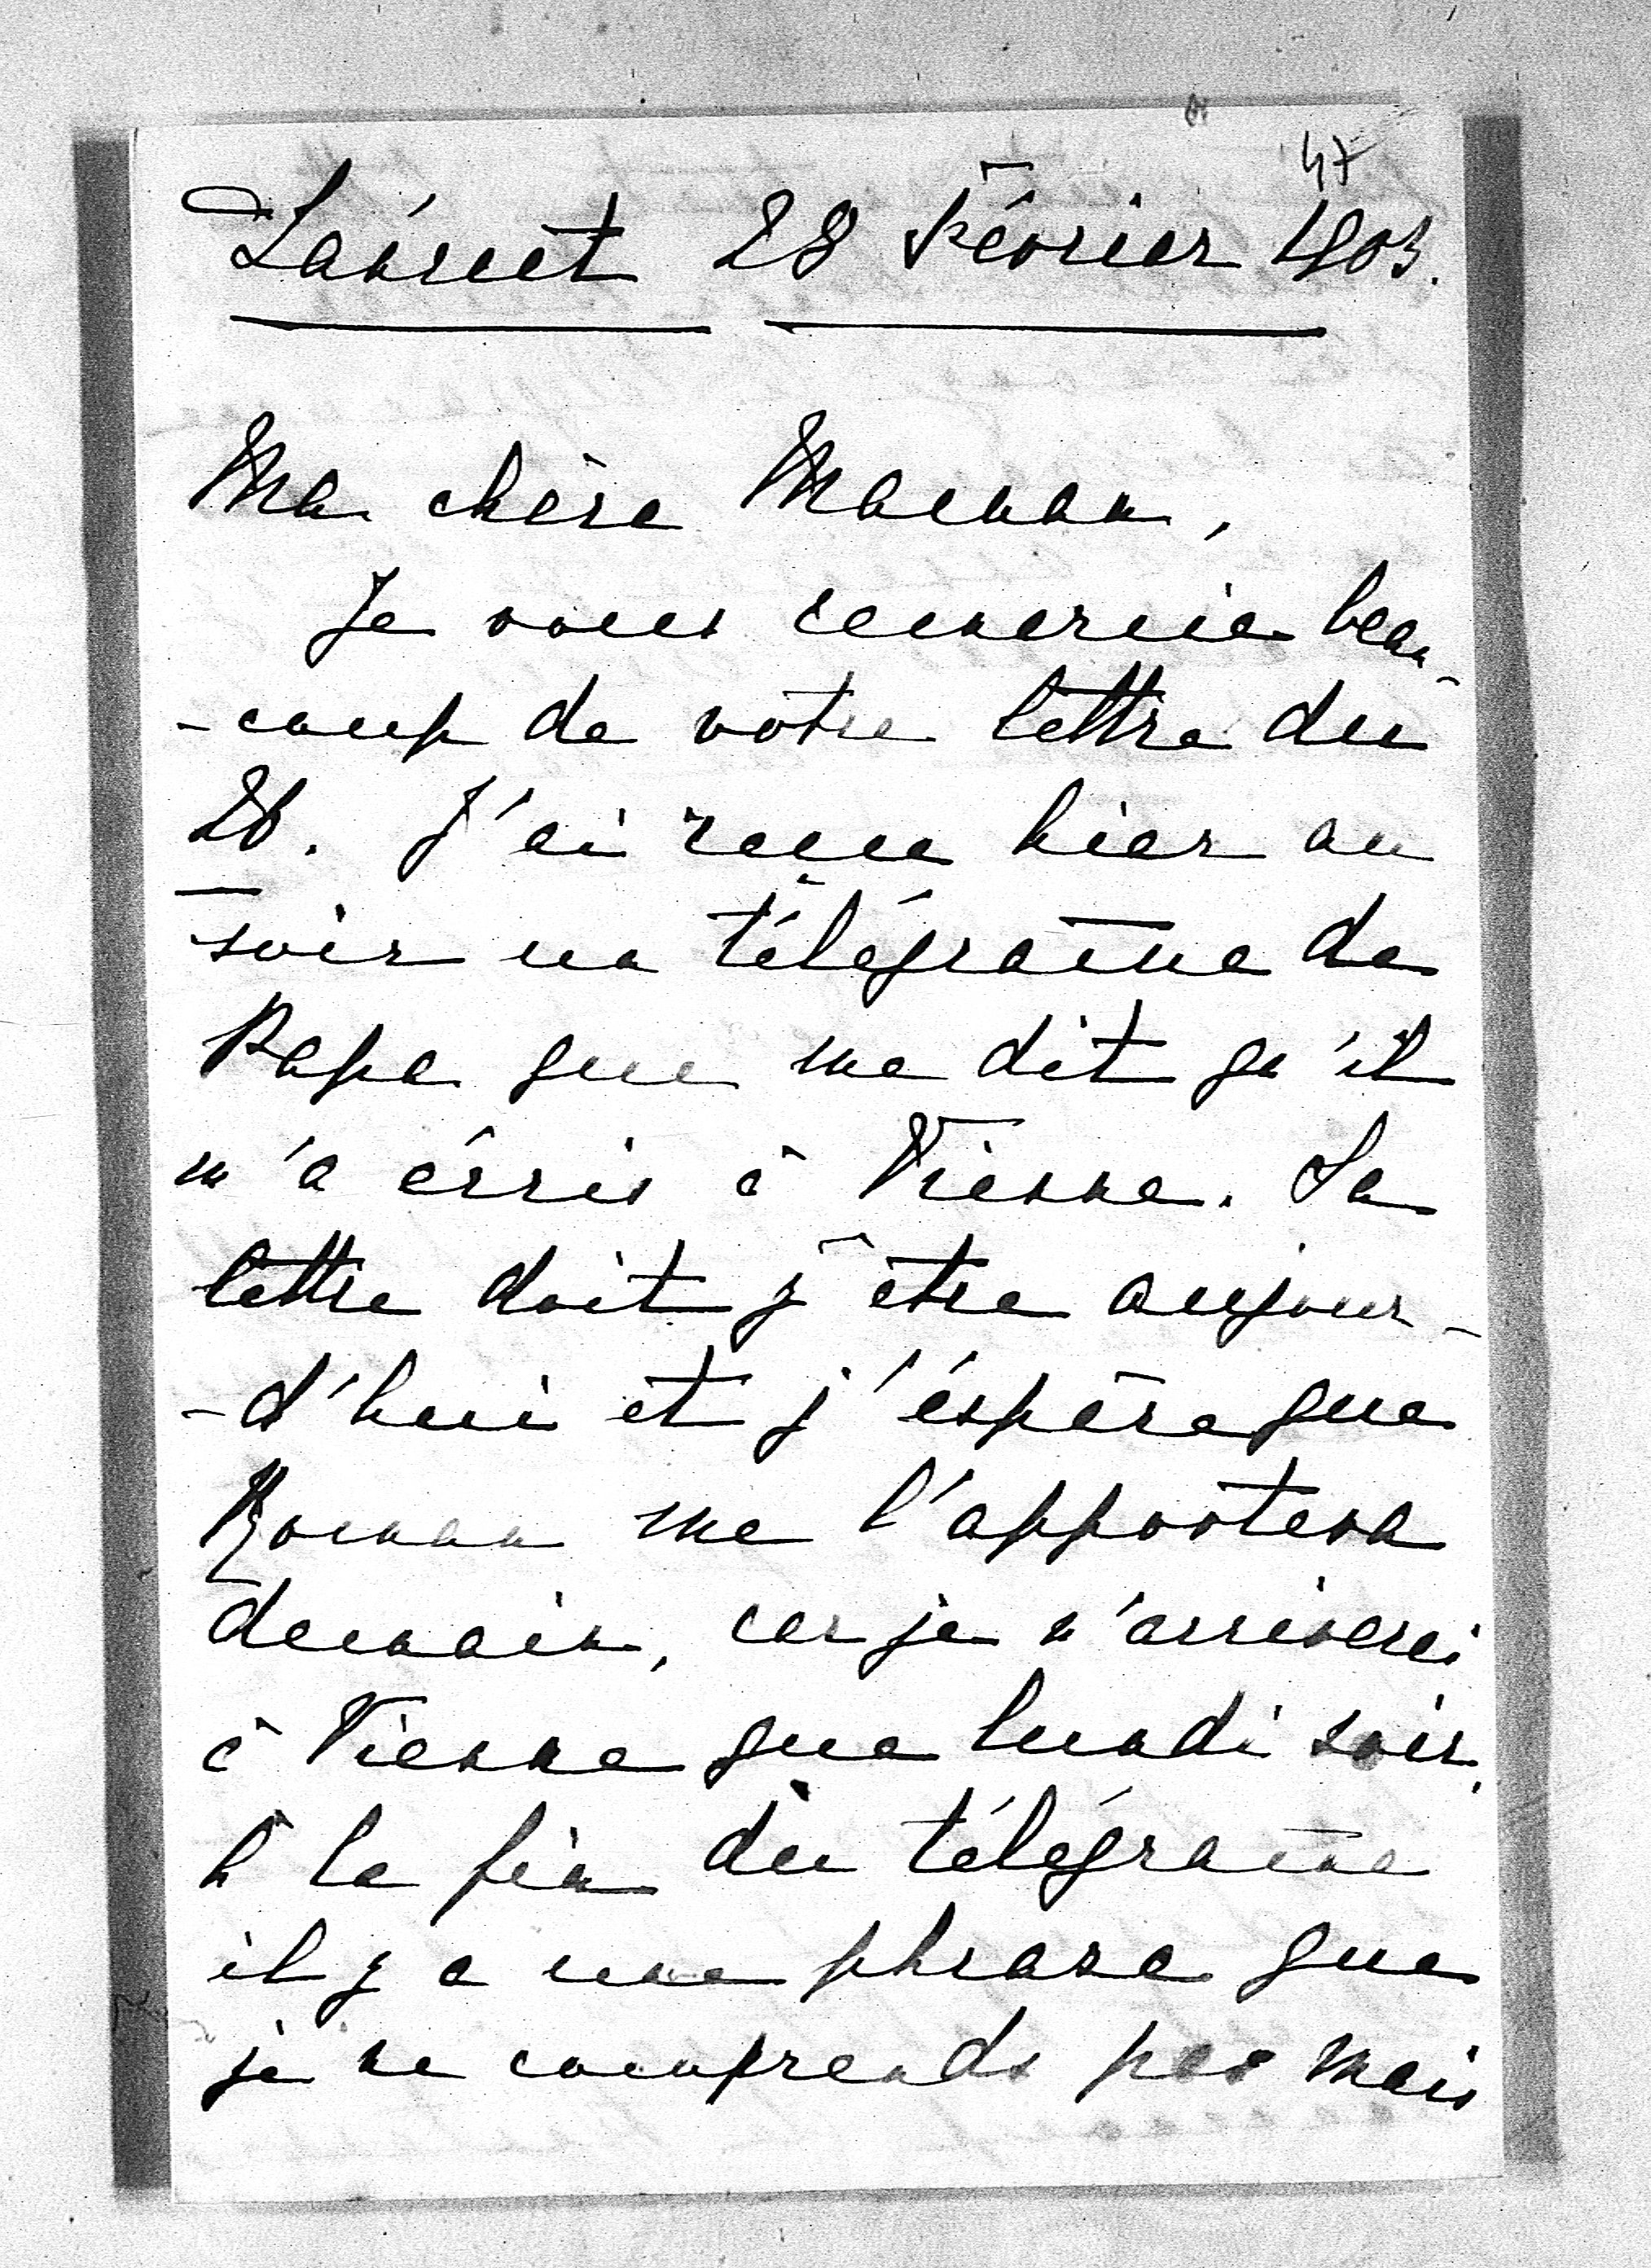 47
Łańcut 28 Février 1903.
Ma chère Maman,
Je vous remercie beau-
-coup de votre lettre du
26. J'ai reçue hier au
soir un télégrame de
Papa que me dit qu'il
m'a écris à Vienne. Sa
lettre doit y être aujour-
-d'hui et j'éspère que
Roman me l'apportera
demain, car je n'arriverai
à Vienne que lundi soir.
A la fin du télégrame
il y a une phrase que
je ne comprends pas mais